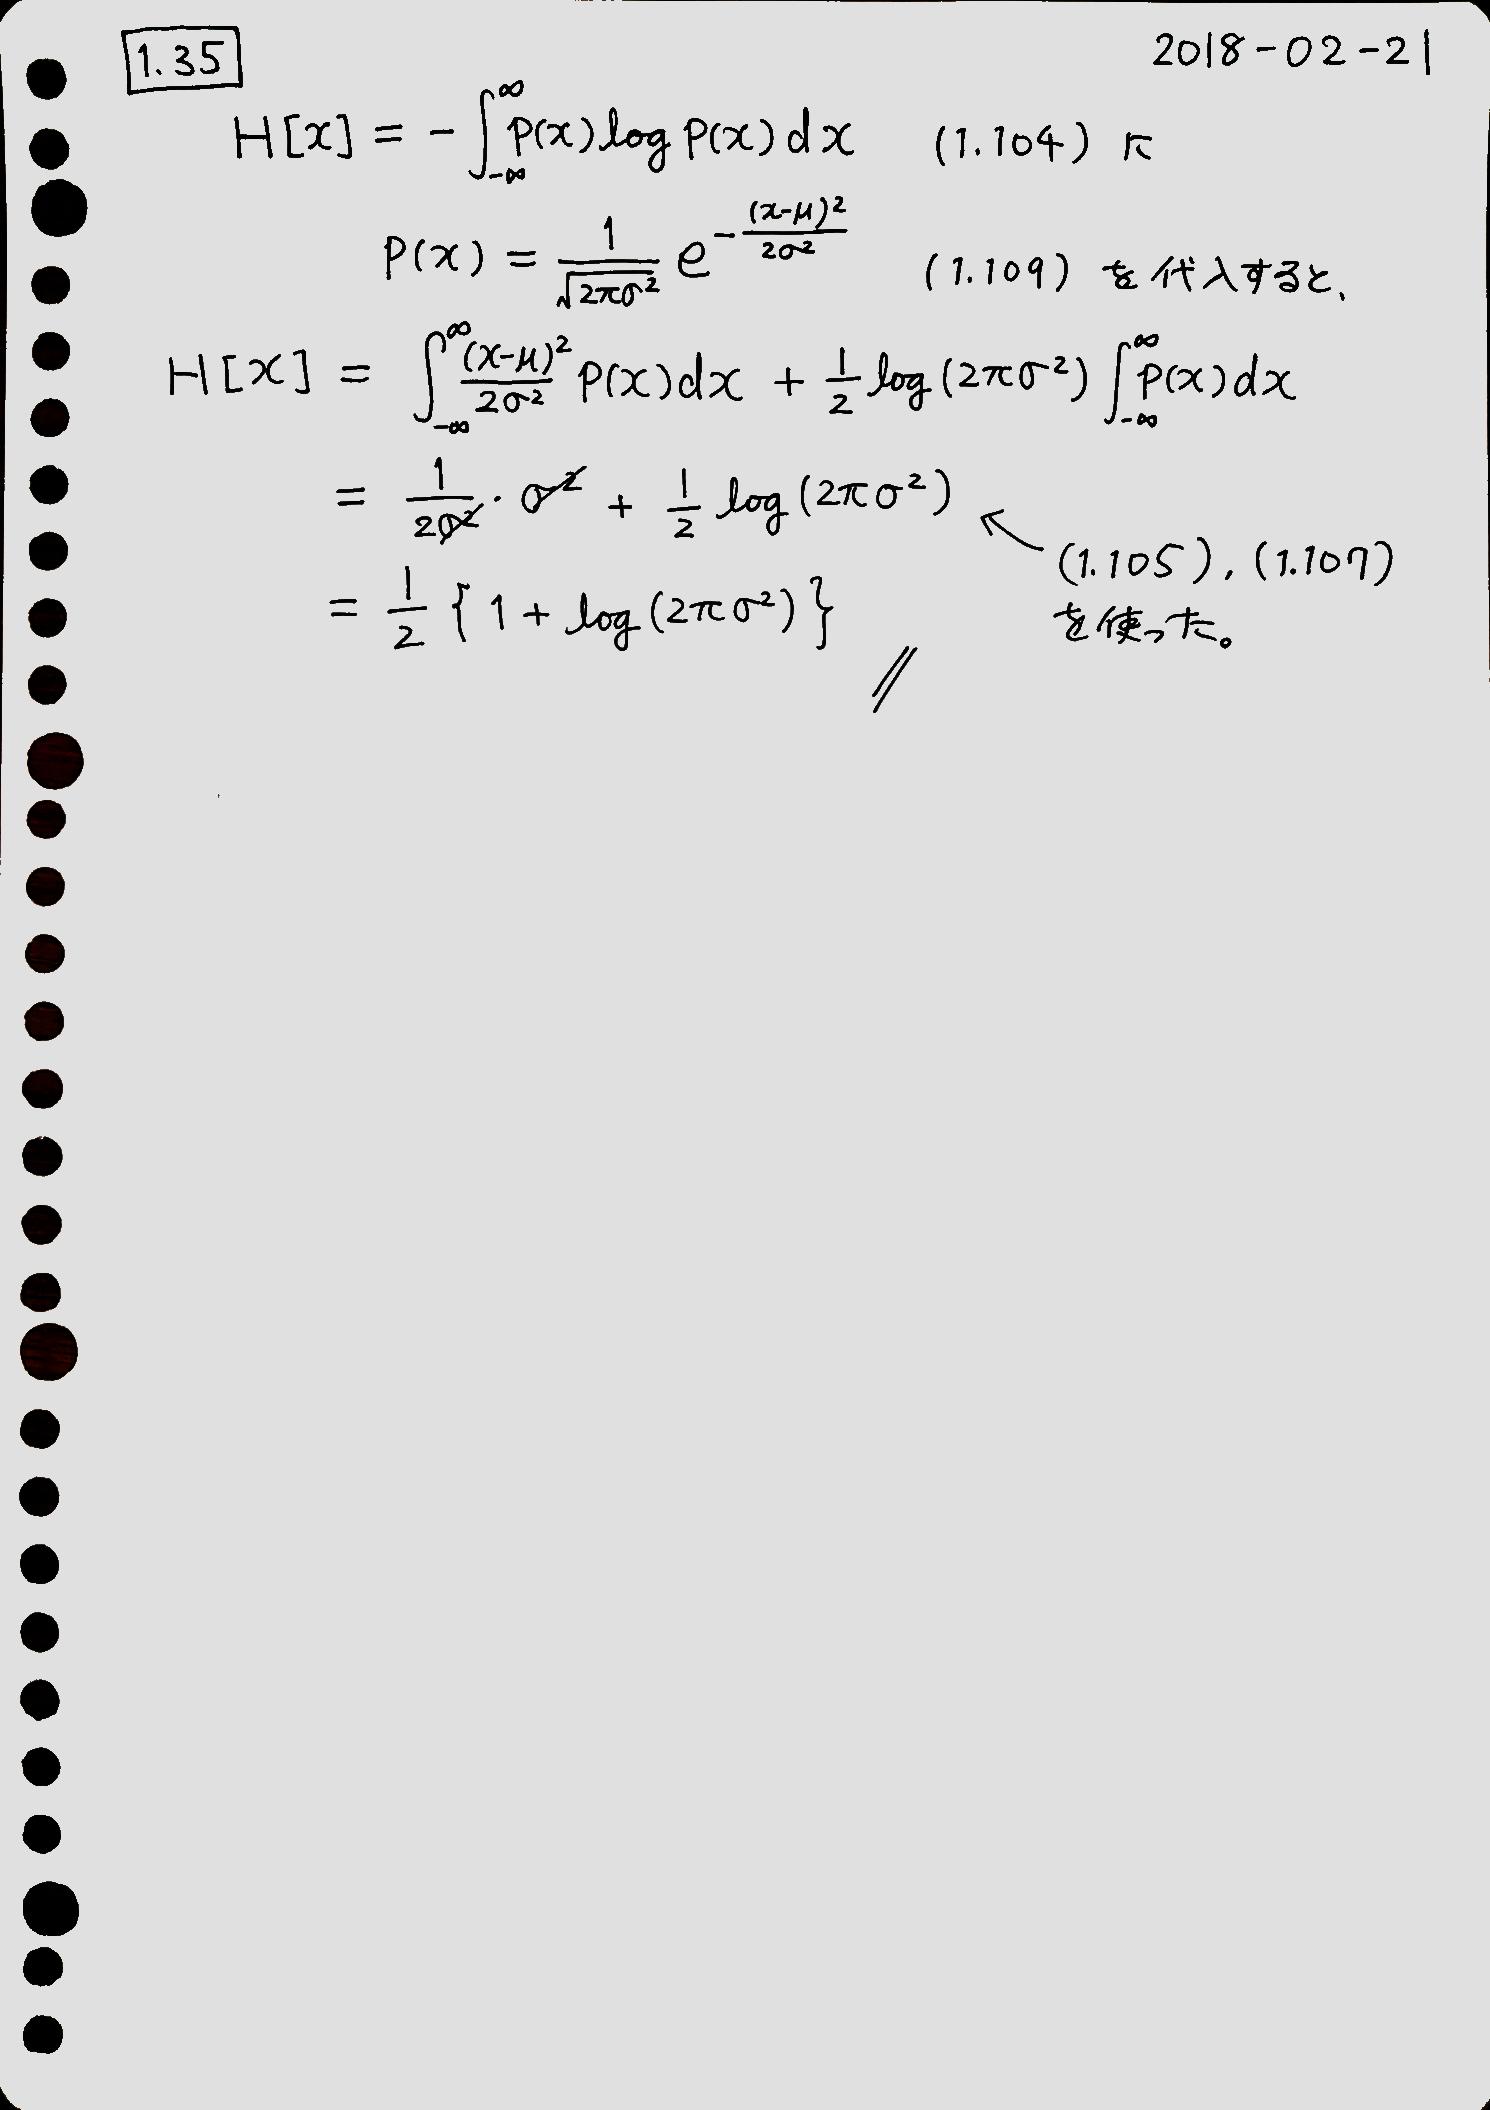 1.35 2018-02-21
H[x] = -∫_{-∞}^{∞} P(x) log P(x) dx (1.104) に
P(x) = \frac{1}{\sqrt{2πσ^2}} e^{-\frac{(x-μ)^2}{2σ^2}} (1.109) を代入すると、
H[x] = ∫_{-∞}^{∞} \frac{(x-μ)^2}{2σ^2} P(x) dx + \frac{1}{2} log (2πσ^2) ∫_{-∞}^{∞} P(x) dx
= \frac{1}{2σ^2} · σ^2 + \frac{1}{2} log (2πσ^2)
(1.105), (1.107)
を使った。
= \frac{1}{2} { 1 + log (2πσ^2) }
//